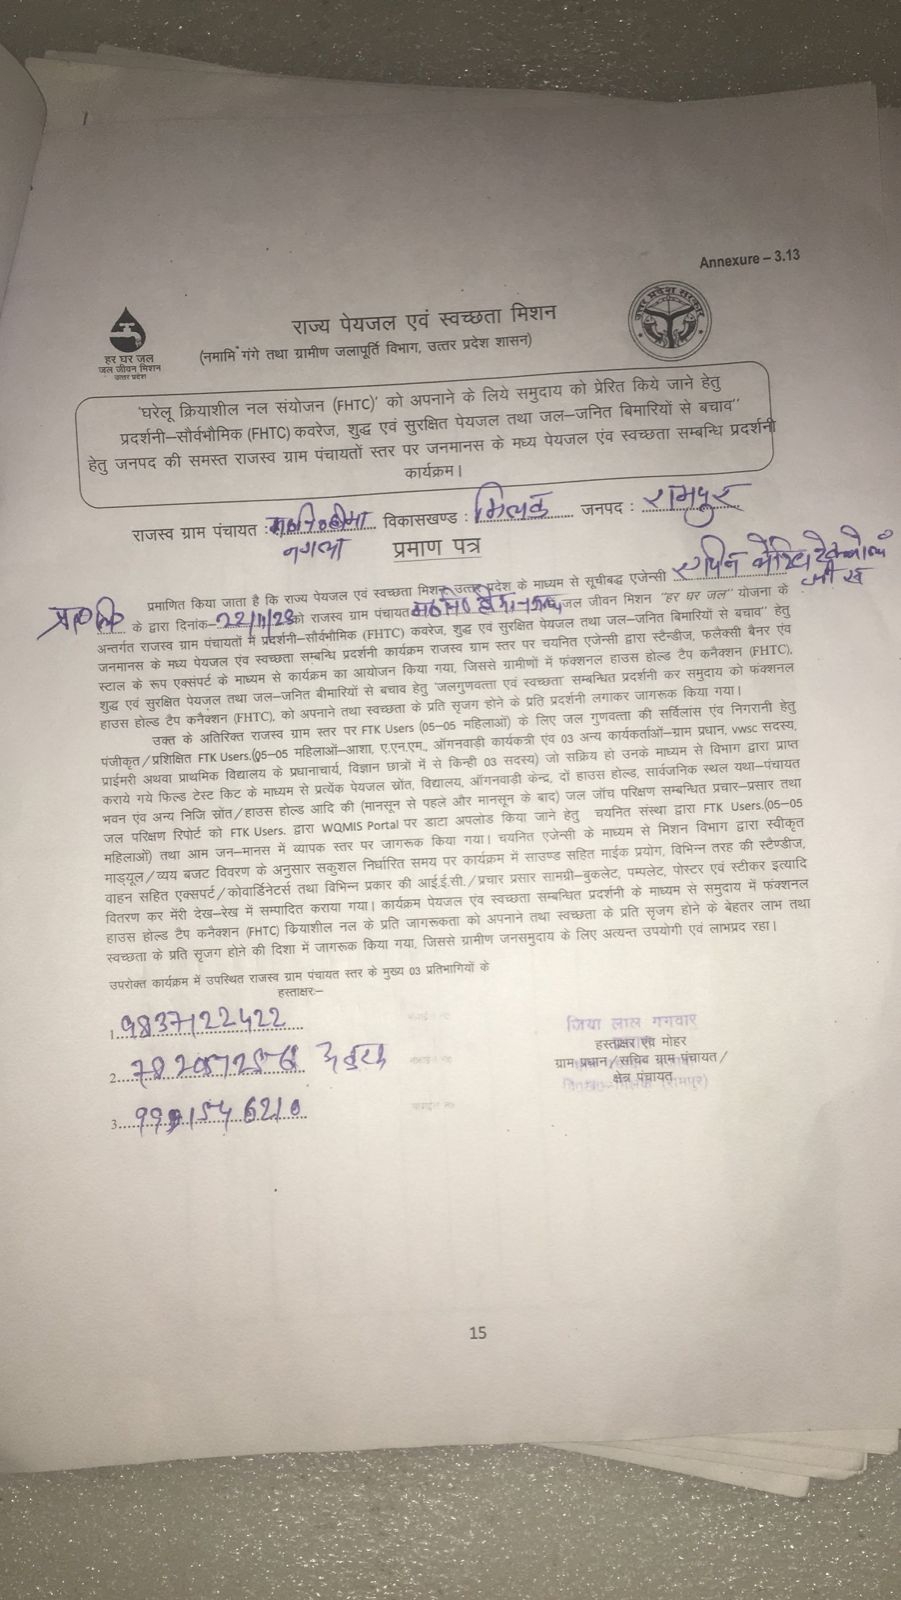 Annexure – 3.13
राज्य पेयजल एवं स्वच्छता मिशन
(नमामि गंगे तथा ग्रामीण जलापूर्ति विभाग, उत्तर प्रदेश शासन)
हर घर जल
जल जीवन मिशन
उत्तर प्रदेश
उत्तर प्रदेश सरकार
'घरेलू क्रियाशील नल संयोजन (FHTC)' को अपनाने के लिये समुदाय को प्रेरित किये जाने हेतु
प्रदर्शनी–सौर्वभौमिक (FHTC) कवरेज, शुद्ध एवं सुरक्षित पेयजल तथा जल–जनित बिमारियों से बचाव''
हेतु जनपद की समस्त राजस्व ग्राम पंचायतों स्तर पर जनमानस के मध्य पेयजल एंव स्वच्छता सम्बन्धि प्रदर्शनी
कार्यक्रम।
राजस्व ग्राम पंचायत : विकासखण्ड : मिलक जनपद : रामपुर
नगला
प्रमाण पत्र
प्रमाणित किया जाता है कि राज्य पेयजल एवं स्वच्छता मिशन उत्तर प्रदेश के माध्यम से सूचीबद्ध एजेन्सी
के द्वारा दिनांक–22/11/23 को राजस्व ग्राम पंचायत जल जीवन मिशन "हर घर जल" योजना के
अन्तर्गत राजस्व ग्राम पंचायतों में प्रदर्शनी–सौर्वभौमिक (FHTC) कवरेज, शुद्ध एवं सुरक्षित पेयजल तथा जल–जनित बिमारियों से बचाव" हेतु
जनमानस के मध्य पेयजल एंव स्वच्छता सम्बन्धि प्रदर्शनी कार्यक्रम राजस्व ग्राम स्तर पर चयनित एजेन्सी द्वारा स्टैन्डीज, फलेक्सी बैनर एंव
स्टाल के रूप एक्संपर्ट के माध्यम से कार्यक्रम का आयोजन किया गया, जिससे ग्रामीणों में फंक्शनल हाउस होल्ड टैप कनैक्शन (FHTC),
शुद्ध एवं सुरक्षित पेयजल तथा जल–जनित बीमारियों से बचाव हेतु 'जलगुणवत्ता एवं स्वच्छता' सम्बन्धित प्रदर्शनी कर समुदाय को फंक्शनल
हाउस होल्ड टैप कनैक्शन (FHTC), को अपनाने तथा स्वच्छता के प्रति सृजग होने के प्रति प्रदर्शनी लगाकर जागरूक किया गया।
उक्त के अतिरिक्त राजस्व ग्राम स्तर पर FTK Users (05–05 महिलाओं) के लिए जल गुणवत्ता की सर्विलांस एंव निगरानी हेतु
पंजीकृत/प्रशिक्षित FTK Users.(05–05 महिलाओं–आशा, ए.एन.एम., ऑगनवाड़ी कार्यकत्री एंव 03 अन्य कार्यकर्ताओं–ग्राम प्रधान, vwsc सदस्य,
प्राईमरी अथवा प्राथमिक विद्यालय के प्रधानाचार्य, विज्ञान छात्रों में से किन्ही 03 सदस्य) जो सक्रिय हो उनके माध्यम से विभाग द्वारा प्राप्त
कराये गये फिल्ड टेस्ट किट के माध्यम से प्रत्येक पेयजल स्रोत, विद्यालय, ऑगनवाड़ी केन्द्र, दों हाउस होल्ड, सार्वजनिक स्थल यथा–पंचायत
भवन एंव अन्य निजि स्रोंत/हाउस होल्ड आदि की (मानसून से पहले और मानसून के बाद) जल जाँच परिक्षण सम्बन्धित प्रचार–प्रसार तथा
जल परिक्षण रिपोर्ट को FTK Users. द्वारा WQMIS Portal पर डाटा अपलोड किया जाने हेतु चयनित संस्था द्वारा FTK Users.(05–05
महिलाओं) तथा आम जन–मानस में व्यापक स्तर पर जागरूक किया गया। चयनित एजेन्सी के माध्यम से मिशन विभाग द्वारा स्वीकृत
माड्यूल/व्यय बजट विवरण के अनुसार सकुशल निर्धारित समय पर कार्यक्रम में साउण्ड सहित माईक प्रयोग, विभिन्न तरह की स्टैण्डीज,
वाहन सहित एक्सपर्ट/कोवार्डिनेटर्स तथा विभिन्न प्रकार की आई.ई.सी./प्रचार प्रसार सामग्री–बुकलेट, पम्पलेट, पोस्टर एवं स्टीकर इत्यादि
वितरण कर मेंरी देख–रेख में सम्पादित कराया गया। कार्यक्रम पेयजल एंव स्वच्छता सम्बन्धित प्रदर्शनी के माध्यम से समुदाय में फंक्शनल
हाउस होल्ड टैप कनैक्शन (FHTC) कियाशील नल के प्रति जागरूकता को अपनाने तथा स्वच्छता के प्रति सृजग होने के बेहतर लाभ तथा
स्वच्छता के प्रति सृजग होने की दिशा में जागरूक किया गया, जिससे ग्रामीण जनसमुदाय के लिए अत्यन्त उपयोगी एवं लाभप्रद रहा।
उपरोक्त कार्यक्रम में उपस्थित राजस्व ग्राम पंचायत स्तर के मुख्य 03 प्रतिभागियों के
हस्ताक्षरः–
1. 9837122422
2.
3.
जिया लाल गगवार
हस्ताक्षर एंव मोहर
ग्राम प्रधान/सचिव ग्राम पंचायत/
क्षेत्र पंचायत
15